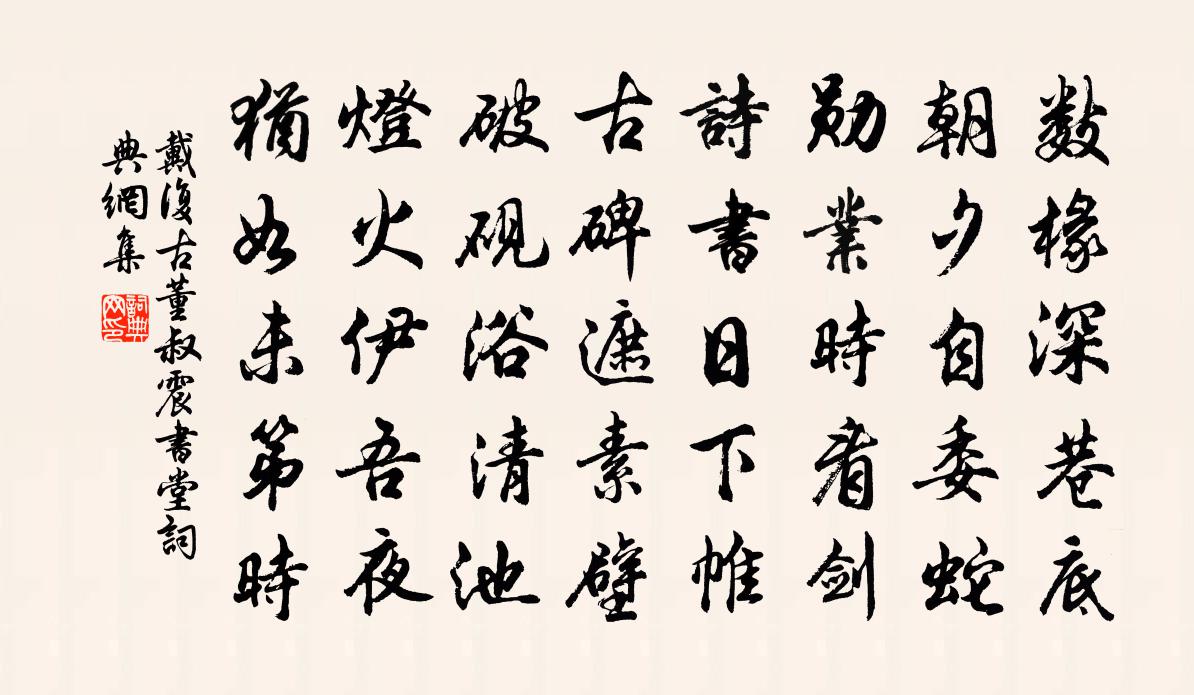 數椽深巷底
朝夕自委蛇
勛業時看劍
詩書日下帷
古碑遮素壁
破硯浴清池
燈火伊吾夜
猶如未第時
戴復古董叔震書堂詞
典網集
詞典
网印